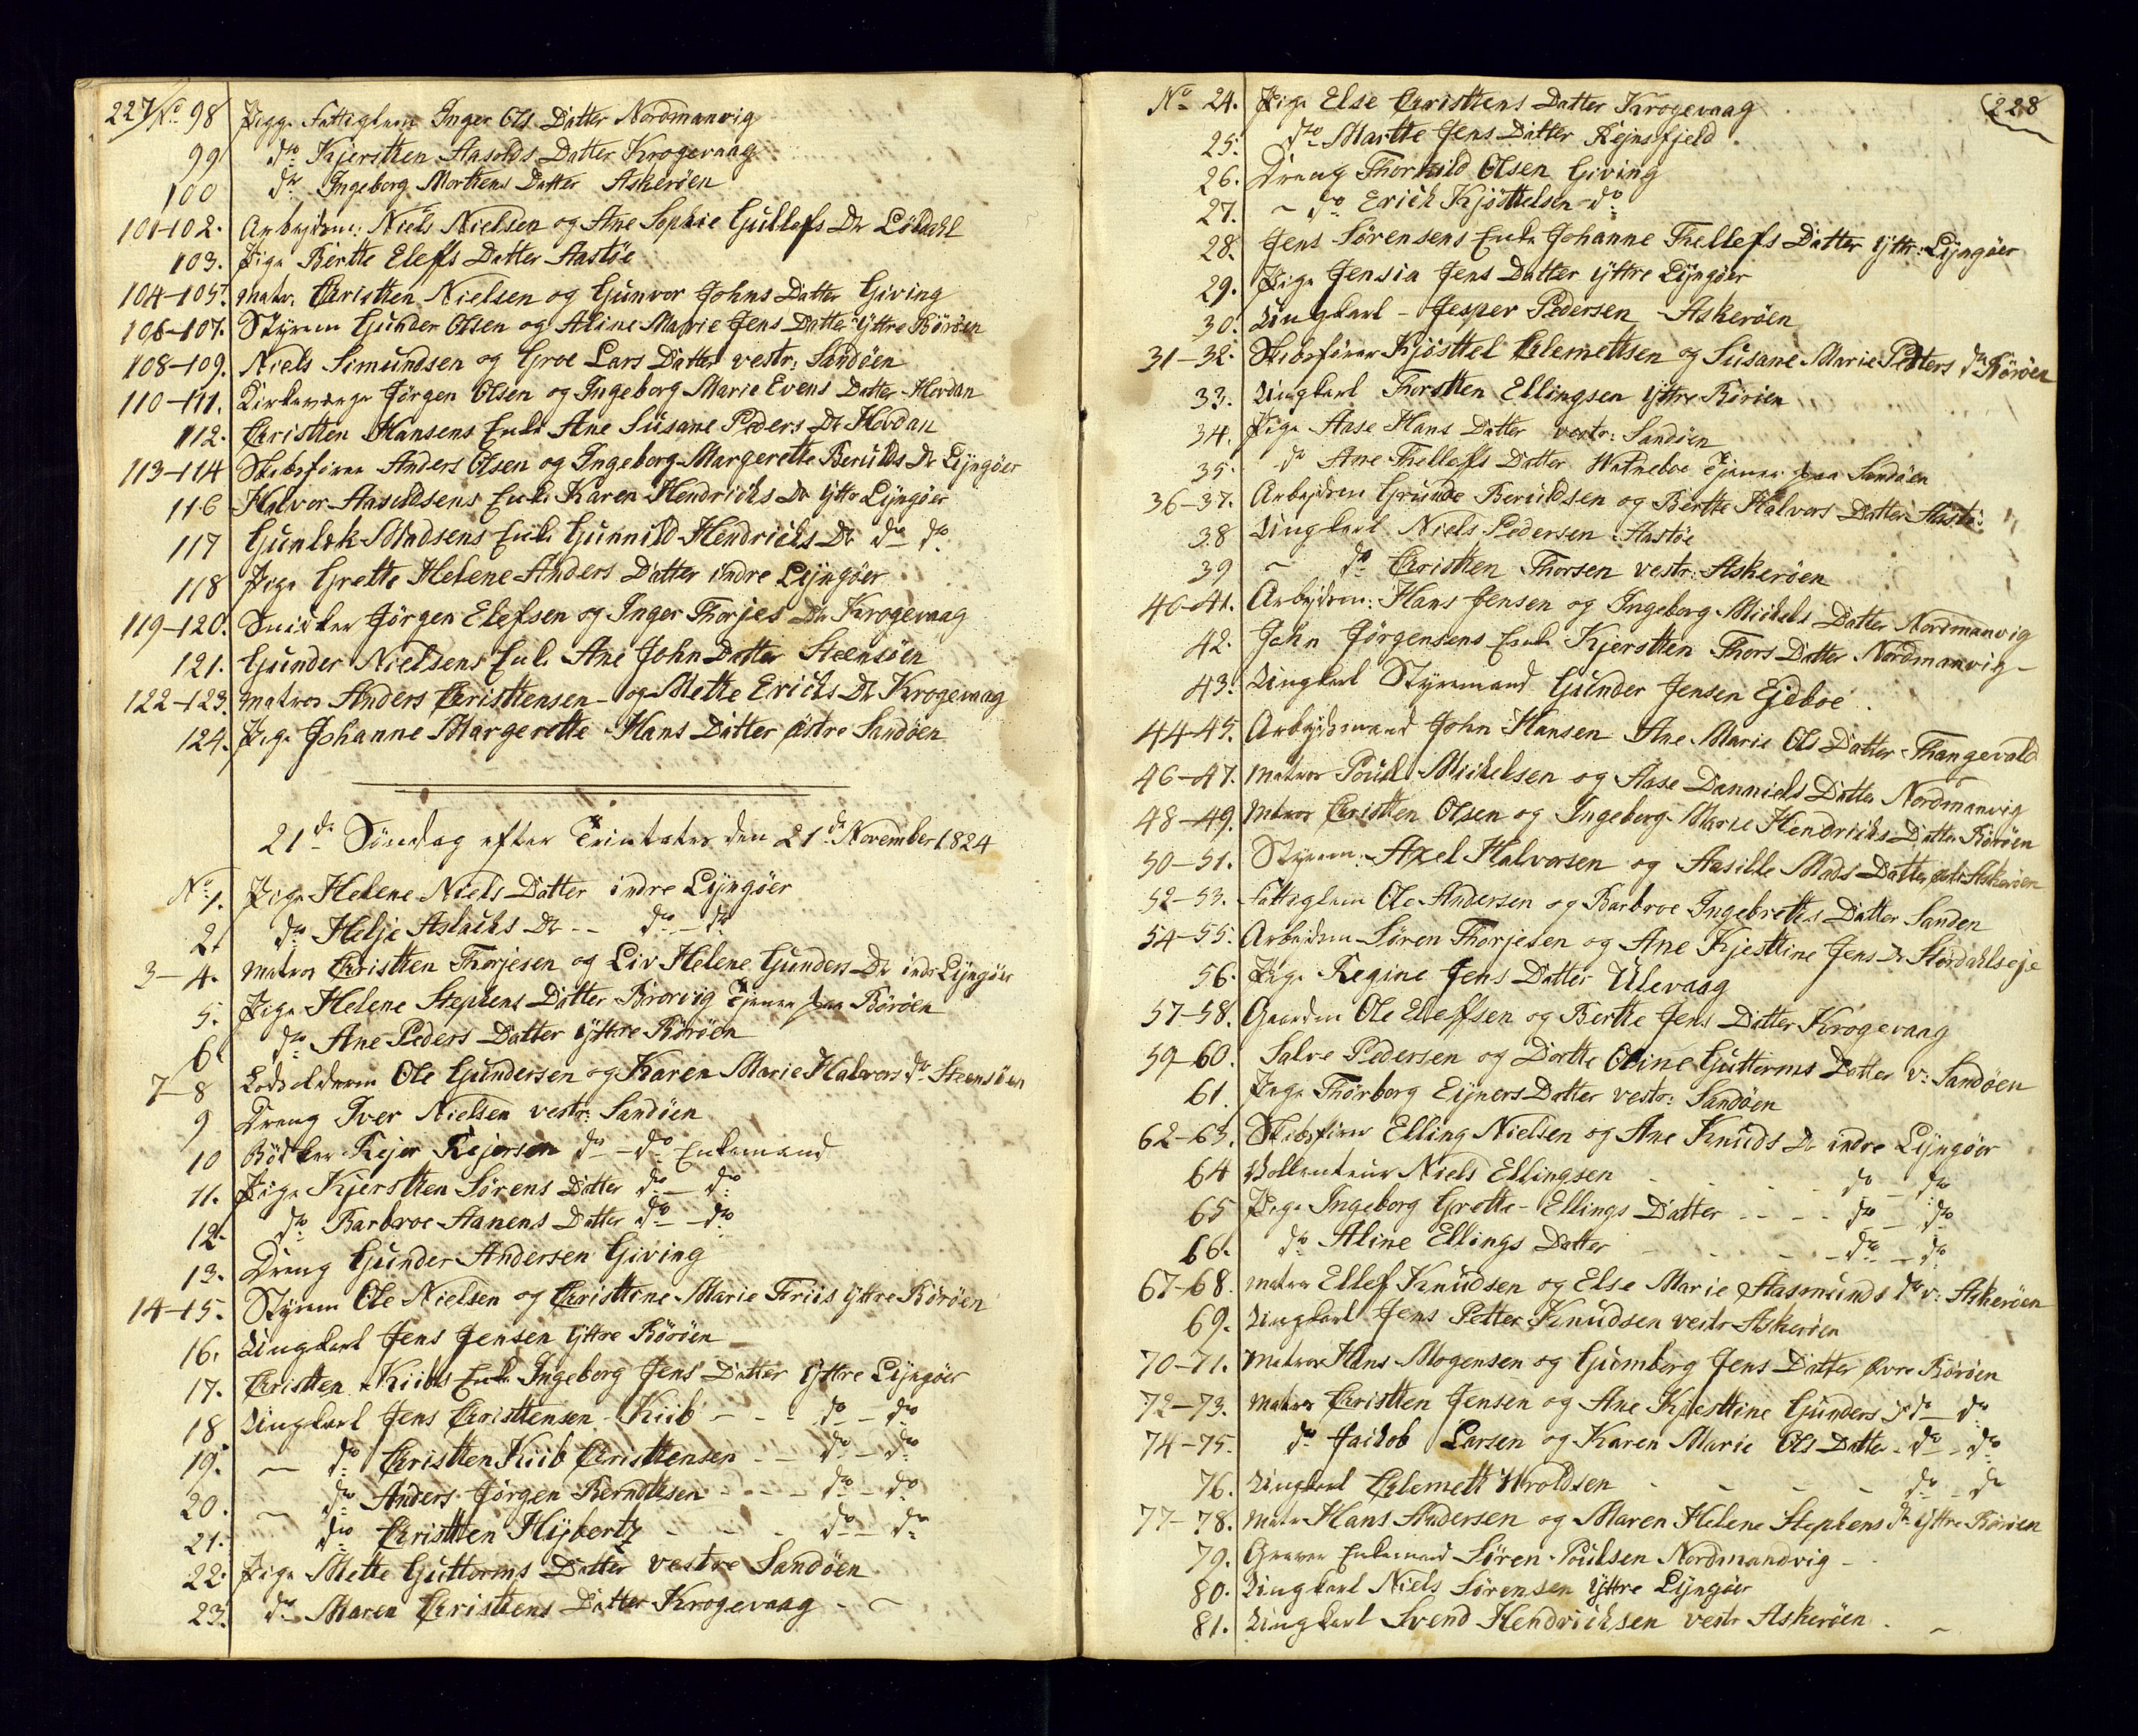 227 No 98 Pige Fattiglem Inger Ols Datter Nordmanvig
99 do Kjersthen Aasolds Datter Krogevaag
100 do Ingeborg Morthens Datter Askerøen
101-102. Arbejdsm: Niels Nielsen og Ane Sophie Gullefs Dr Løldahl
103. Pige Berthe Elefs Datter Aastøe
104-105. Matr: Christhen Nielsen og Gunvor Johns Datter Giving
106-107. Styrem Gunder Olsen og Aline Marie Jens Datter Yttre Børøen
108-109. Niels Simundsen og Groe Lars Datter vestr: Sandøen
110-111. Kirkeværge Jørgen Olsen og Ingeborg Marie Evens Datter Hovdan
112. Christhen Hansens Enke Ane Susane Peders Dr Hovdan
113-114 Skibsfører Anders Olsen og Ingeborg Margerethe Berulds Dr Lyngøer
116 Halvor Aasuldsens Enke Karen Hendrichs Dr Yttr Lyngøer
117 Gunlek Madsens Enke Gunnild Hendrichs Dr do do
118 Pige Grethe Helene Anders Datter indre Lyngøer
119-120. Snidker Jørgen Elefsen og Inger Thorjes Dr Krogevaag
121. Gunder Nielsens Enke Ane John Datter Steensøen
122-123. Matros Anders Christhensen og Mette Erichs Dr Krogevaag
124. Pige Johanne Margerethe Hans Datter østre Sandøen
21de Søndag efter Trintates den 21de November 1824
No 1. Pige Helene Niels Datter indre Lyngøer
2. do Helje Aslachs Dr -- do - do
3-4. Matros Christhen Thorjesen og Liv Helene Gunders Dr indr Lyngøer
5. Pige Helene Stephens Datter Brorvig Tjener paa Børøen
6. do Ane Peders Datter Yttre Børøen
7-8 Lodsoldermd Ole Gundersen og Karen Marie Halvors dr Steensøen
9 Dreng Iver Nielsen vestr: Sandøen
10 Bødker Rejer Rejersen do - do Enkemand
11. Pige Kjersthen Sørens Datter do - do
12. do Barbroe Aanens Datter do - do
13. Dreng Gunder Andersen Giving
14-15. Styrem Ole Nielsen og Christhine Marie Friis Yttre Børøen
16. Ungkarl Jens Jensen Yttre Børøen
17. Christhen Kiibs Enke Ingeborg Jens Datter Yttre Lyngøer
18 Ungkarl Jens Christhensen Kiib - - - do - do
19. - do Christhen Kiib Christhensen - - do - do
20. - do Anders Jørgen Berndtsen - - - do - do
21. do Christhen Hybertz - - - do - do
22. Pige Mette Guttorms Datter vestre Sandøen
23. do Maren Christhens Datter Krogevaag - -
228
No 24. Pige Else Christhens Datter Krogevaag
25. do Marthe Jens Datter Rejnsfjeld
26. Dreng Thorkild Olsen Giving
27. - do Erich Kjøsttelsen do
28. Jens Sørensens Enke Johanne Thellefs Datter Yttr: Lyngøer
29. Pige Jensia Jens Datter Yttre Lyngøer
30. Ungkarl - Jesper Pedersen Askerøen
31-32. Skibsfører Kjøsttel Clemettsen og Susane Marie Petters dr Børøen
33. Ungkarl Thorsthen Ellingsen Yttre Børøen
34. Pige Aase Hans Datter vestr: Sandøen
35. do Ane Thellefs Datter Watneboe Tjener paa Sandøen
36-37. Arbejdsm Grunde Beruldsen og Berthe Halvors Datter Aastø:
38 Ungkarl Niels Pedersen Aastøe
39 - do Christhen Thorsen vestr: Askerøen
40-41. Arbejdsm: Hans Jensen og Ingeborg Michels Datter Nordmanvig
42. John Jørgensens Enke Kjersthen Thors Datter Nordmanvig -
43. Ungkarl Styremand Gunder Jensen Ejdboe
44-45. Arbejdsmand John Hansen Ane Marie Ols Datter Thangevald
46-47. Matros Poul Michelsen og Aase Danniels Datter Nordmanvig
48-49. Matros Christhen Olsen og Ingeborg Marie Hendrichs Datter Børøen
50-51. Styrm: Axel Halvorsen og Aasille Mads Datter Askerøen
52-53. Fattiglem Ole Andersen og Barbroe Ingebrethes Datter Sanden
54-55. Arbejdsm Søren Thorjesen og Ane Kjesthine Jens Dr Stordahlseje
56. Pige Regine Jens Datter Ulevaag
57-58. Gaardm Ole Eleffsen og Berthe Jens Datter Krogevaag
59-60. Salve Pedersen og Dorthe Oline Guttorms Datter v: Sandøen
61. Pige Thorborg Ejners Datter vestr: Sandøen
62-63. Skibsfører Elling Nielsen og Ane Knuds Dr indre Lyngøer
64 Vollenteur Niels Ellingsen - - - - do - do
65 Pige Ingeborg Grethe Ellings Datter - - - - do - do
66. do Aline Ellings Datter - - - - do - do
67-68. Matros Ellef Knudsen og Else Marie Aasmunds dr v: Askerøen
69. Ungkarl Jens Petter Knudsen vestr Askerøen
70-71. Matros Hans Mogensen og Gurnborg Jens Datter øvre Børøen
72-73. Matros Christhen Jensen og Ane Kjesthine Gunders dr do - do
74-75. do Jachob Larsen og Karen Marie Ols Datter - do - do
76. Ungkarl Clemett Wroldsen - - - - do - do
77-78. Matr Hans Andersen og Maren Helene Stephens dr Yttre Børøen
79. Graver Enkemand Søren Poulsen Nordmandvig -
80. Ungkarl Niels Sørensen Yttre Lyngøer
81. Ungkarl Svend Hendrichsen vestr Askerøen - -